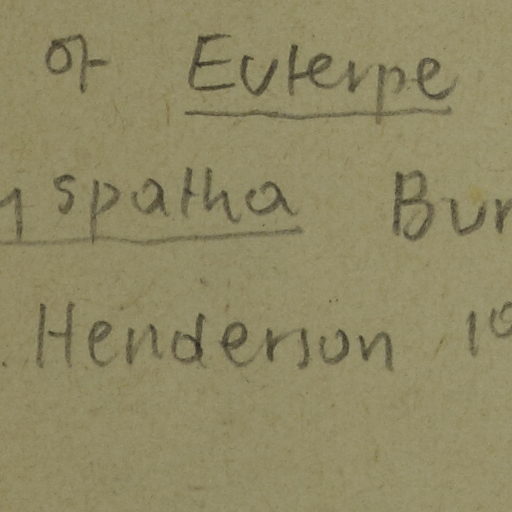 of Euterpe
yspatha Bur
. Henderson 19